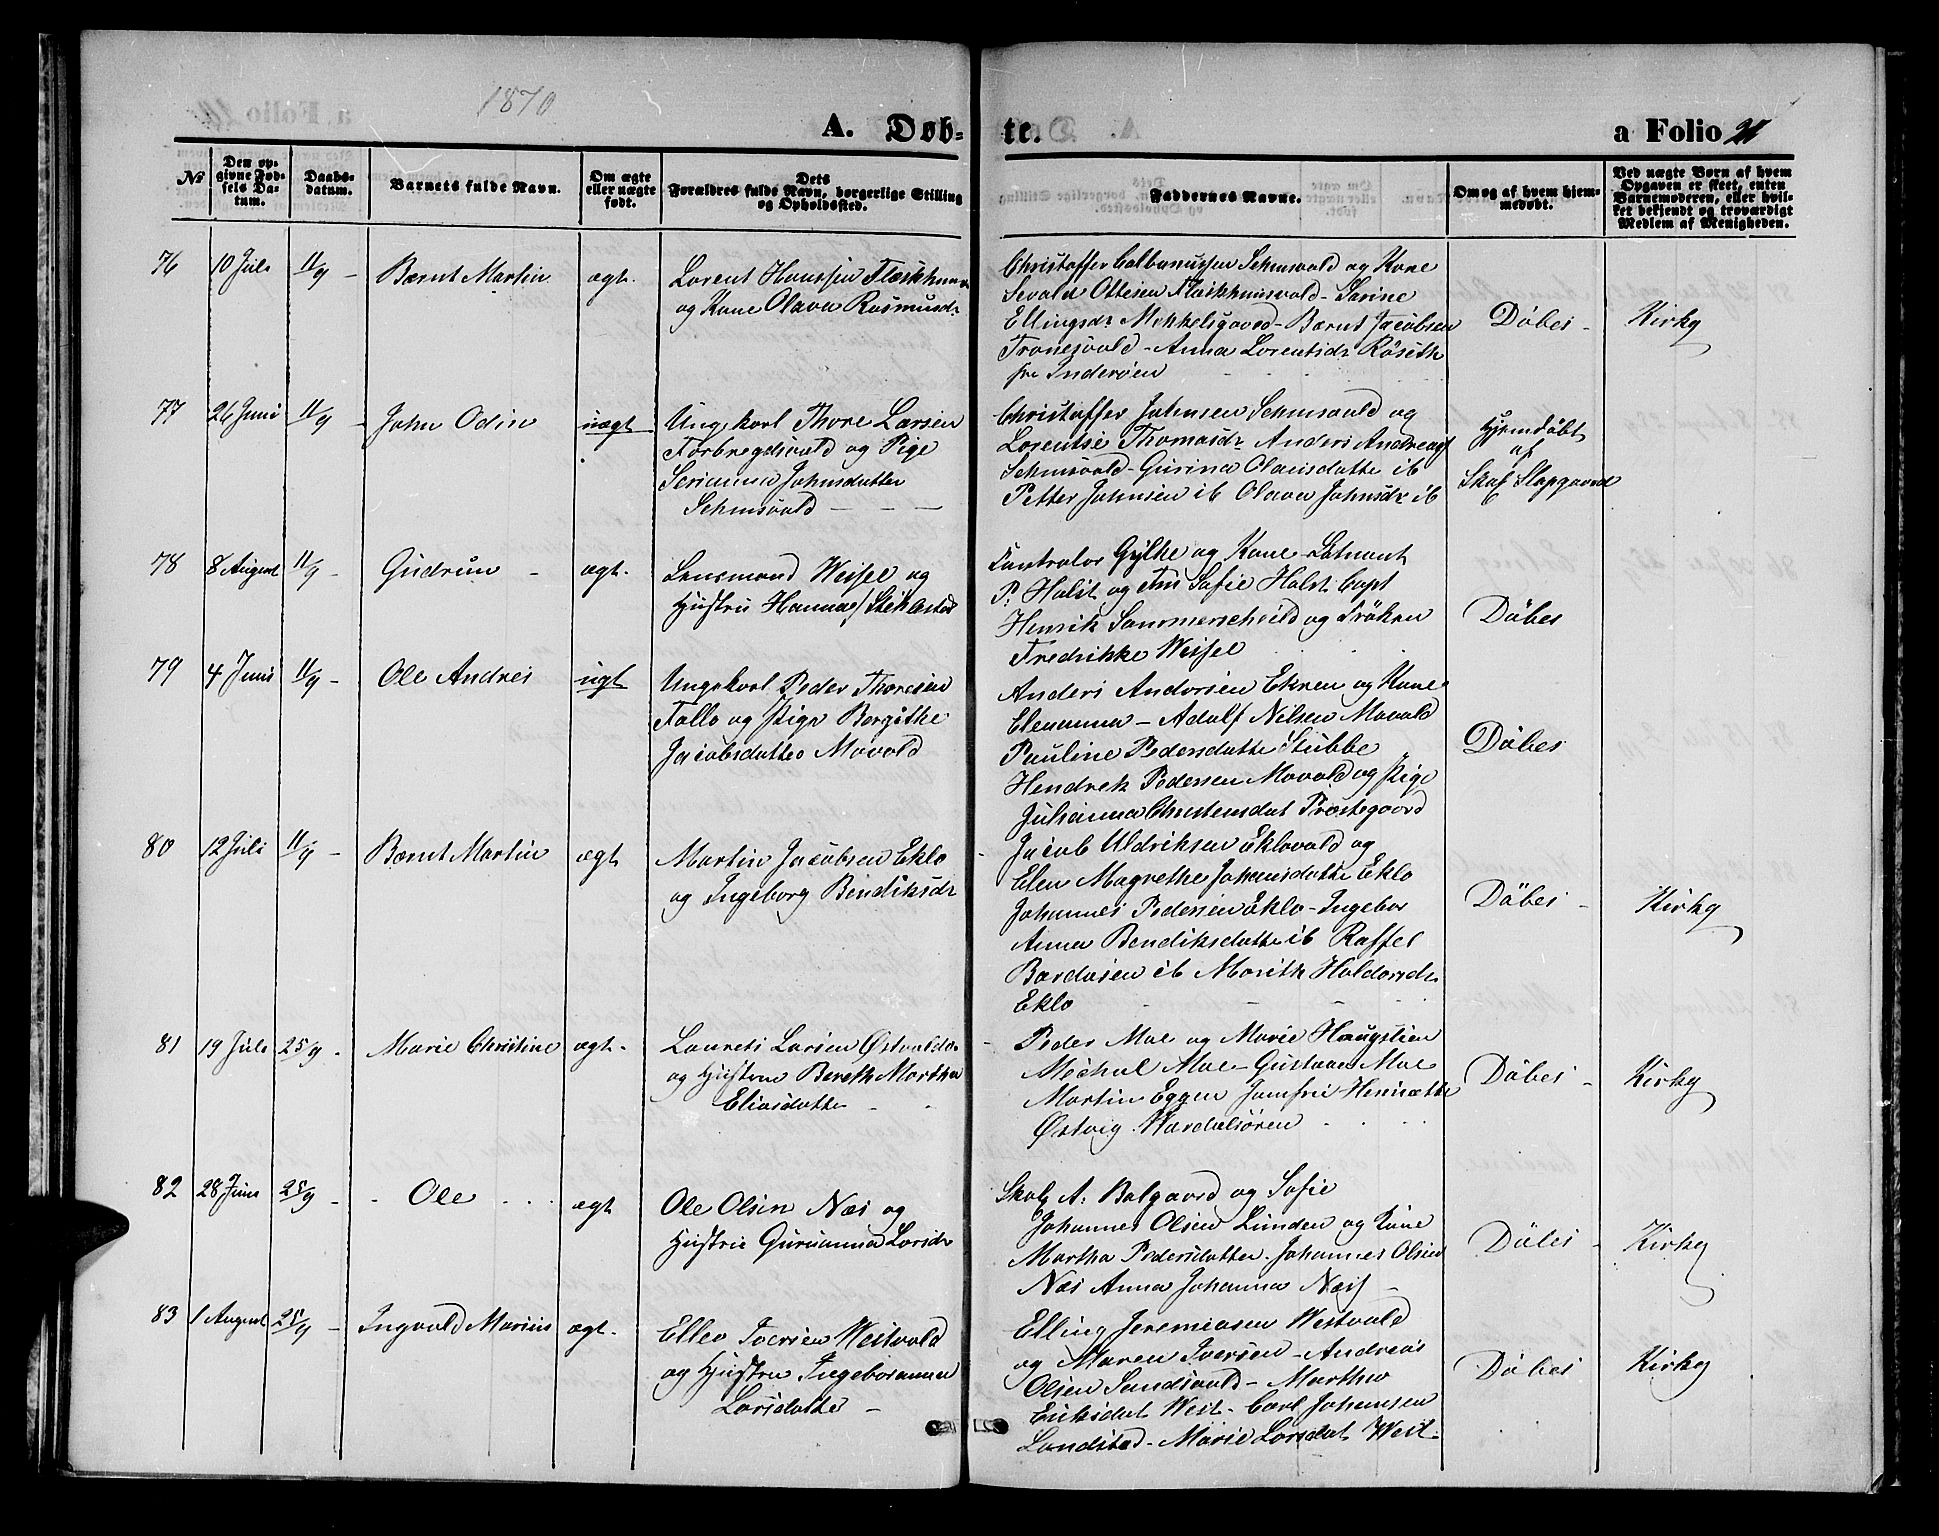 1870
A. Døb- te.
a Folio 21
No
Den opgivne Fødsels Datum.
Daabsdatum.
Barnets fulde Navn.
Om ægte eller uægte født.
Dets Forældres fulde Navn, borgerlige Stilling og Opholdssted.
Faddernes Navne.
Om og af hvem hjemmedøbt.
Ved uægte Børn af hvem Opgaven er skeet, enten Barnemoderen, eller hvilket bekjendt og troværdigt Medlem af Menigheden.
76 10 Juli 11/9 - Bærnt Martin ægt.
Lorent Hanssen
og Kone Olava Rasmusdr
Christoffer Semsvald og Kone
Sevald Ottesen - Sarine
Ellingsdr Mekkelsgaard - Bærnt Jacobsen
Tronesvald - Anna Lorentsdr Röseth
fra Inderöen
Döbes - Kirky
77 26 Juni 11/9 - John Odin uægt
Ungkarl Thore Larsen
Forbregdsvald og Pige
Serianna Johnsdatter
Semsvald - - -
Christoffer Johnsen Semsvald og
Lorentse Thomasdr Anders Andreas
Semsvald - Gusina Olausdatte ib
Petter Johnsen ib Olava Johnsdr ib
Hjemdöbt
af
Skol Slapgaard
78 8 August 11/9 - Gudrun - ægt.
Lensmand Weisel og
Hustru Hanna / Stiklestad
Kontrolør Gylke og Kone - Løtnant
P: Holst og Sofie Holst Capt
Henrik Sommerschield og Fröken
Fredrikke Weisel
Döbes
79 4 Juni 11/9 - Ole Andres uægt
Ungekarl Peder Thoresen
Fallo og Pige Bergithe
Jacobsdatter Movald
Anders Andersen Ekren og Kone
Elenanna - Adolf Nilsen Movald
Pauline Pedersdatte Stubbe
Hendrek Pedersen Movald og Pige
Julianna Christensdat Præstegaard
Döbes
80 12 Juli 11/9 - Bærnt Martin ægt
Martin Jacobsen Eklo
og Ingeborg Bendiksdr
Jacob Uldriksen Eklovald og
Elen Magrethe Johansdatte Eklo
Johannes Pedersen Eklo - Ingebor
Anna Bendiksdatte ib Raffel
Bardosen ib Marith Haldorsdr
Eklo
Döbes - Kirky
81 19 Juli 25/9 - Marie Christine ægt -
Laurets Larsen
og Hustru Bereth Martha
Eliasdatte -
Peder Moe og Marie Haugslien
Mechal Moe - Gustava Moe
Martin Eggen Jomfru Henriette
Østvig Værdalsören
Döbes - Kirky
82 28 Juni 25/9 - Ole ægt
Ole Olsen Næs og
Hustrue Gurianna Larsdr
Skol A: Balgaard og Sofie
Johannes Olsen Lunden og Kone
Martha Pedersdatter. Johannes Olsen
Næs Anna Johanna Næs -
Döbes - Kirky
83 1 August 25/9 - Ingvald Marius ægt.
Ellev Iversen Westvald
og Hustru Ingeboranna
Larsdatte -
Elling Jeremiasen Westvald
og Maren Iversen - Andreas
Olsen Sundsvald - Martha
Eriksdat West - Carl Johansen
Landstad - Marie Larsdat West.
Döbes Kirky